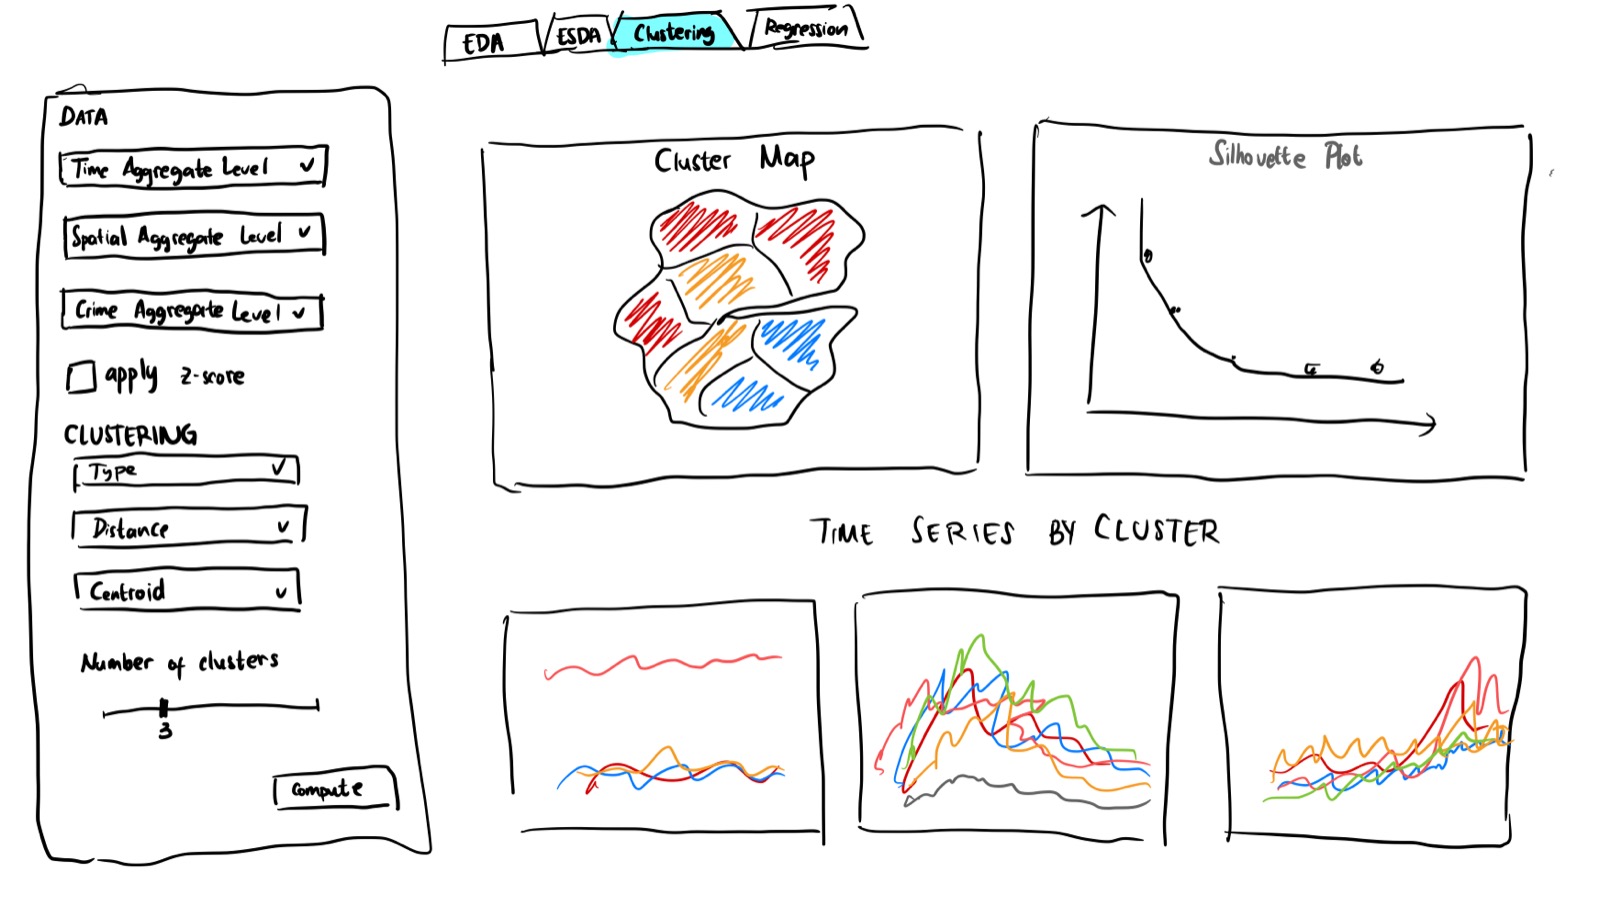 EDA
ESDA
Clustering
Regression
DATA
Time Aggregate Level
Spatial Aggregate Level
Crime Aggregate Level
apply z-score
CLUSTERING
Type
Distance
Centroid
Number of clusters
3
Compute
Cluster Map
Silhouette Plot
TIME SERIES BY CLUSTER